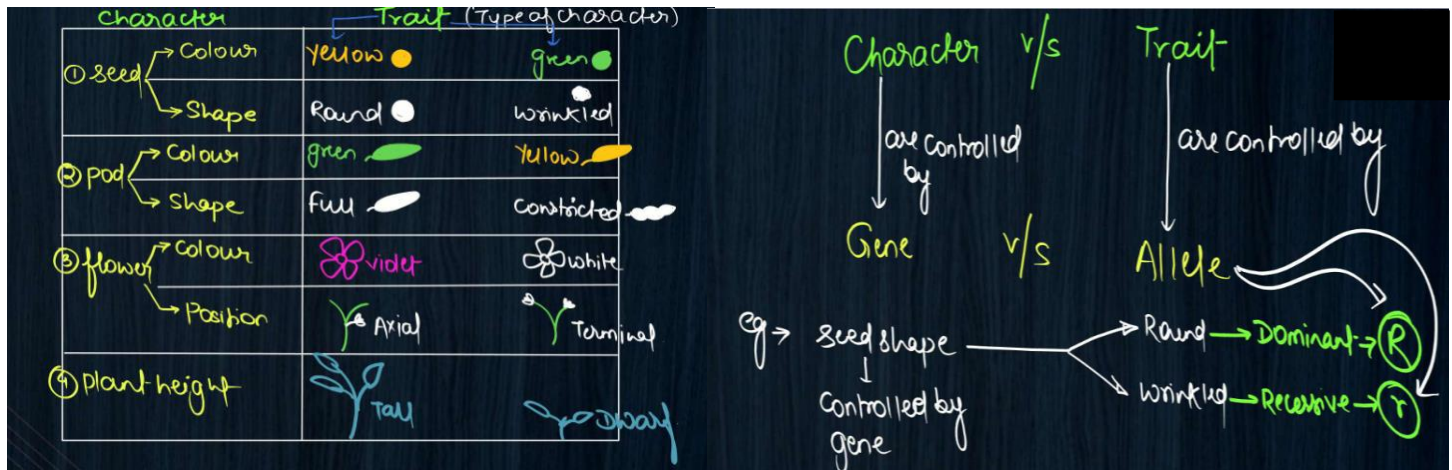 Character Trait (Type of character)
① seed → Colour yellow green
→ Shape Round wrinkled
② pod → Colour green yellow
→ Shape Full Constricted
③ flower → Colour violet white
→ Position Axial Terminal
④ plant height Tall Dwarf
Character v/s Trait
are controlled by are controlled by
Gene v/s Allele
eg → seed shape Round → Dominant → R
Wrinkled → Recessive → r
Controlled by
gene